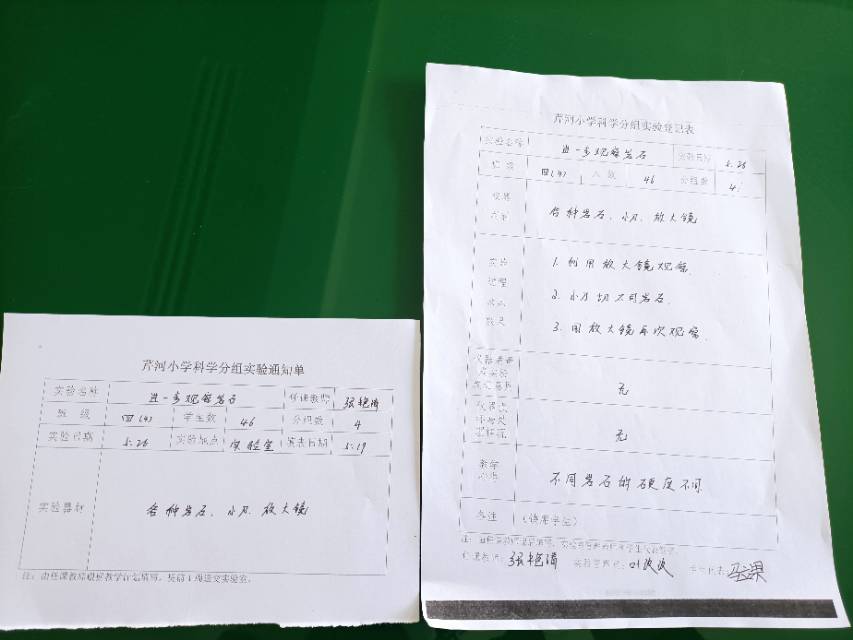 芹河小学科学分组实验通知单
实验名称 进一步观察岩石 任课教师 张艳滴
班 级 四(4) 学生数 46 分组数 4
实验日期 5.26 实验地点 实验室 填表日期 5.19
实验器材 各种岩石、小刀、放大镜
注：由任课教师根据教学计划填写，提前1周送交实验室。
芹河小学科学分组实验登记表
实验名称 进一步观察岩石 实验日期 5.26
班 级 四(4) 人 数 46 分组数 4
各种岩石、小刀、放大镜
实验
过程
1. 利用放大镜观察
2. 小刀切不同岩石
3. 用放大镜再次观察
无
无
不同岩石的硬度不同
备注 (缺席学生)
张艳